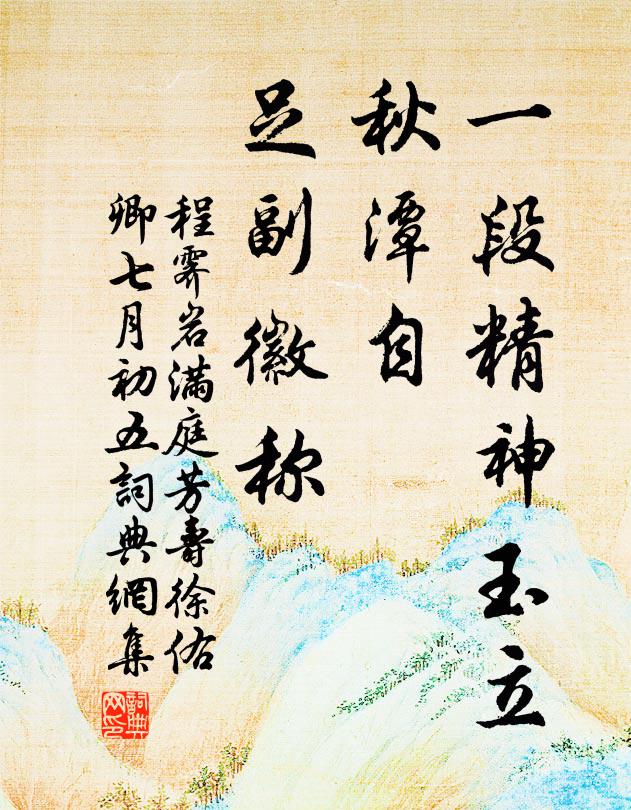 一段精神玉立
秋潭自
足副徽称
程霁岩滿庭芳壽徐佑
卿七月初五詞典網集
詞典网印